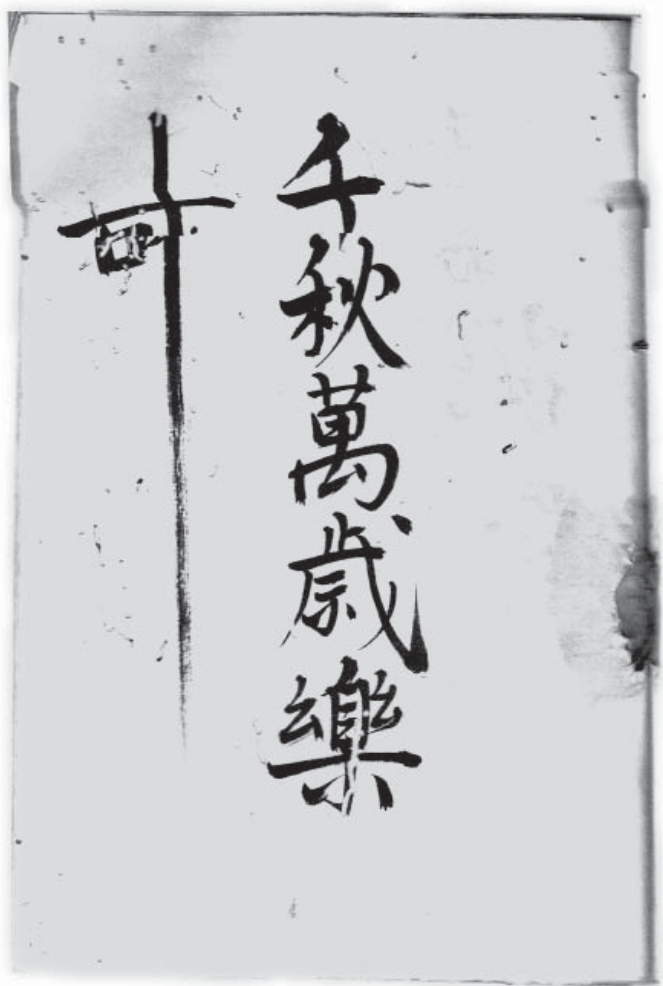 千秋萬歲樂